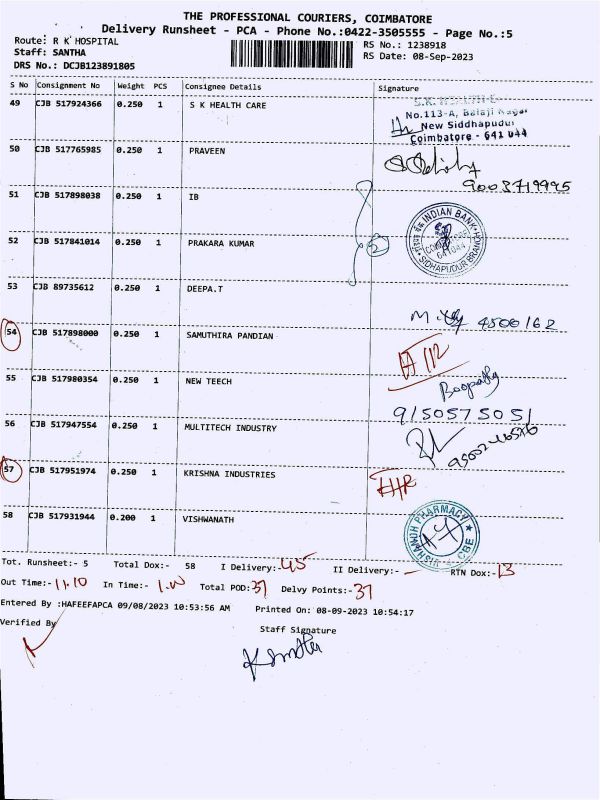 THE PROFESSIONAL COURIERS, COIMBATORE
Delivery Runsheet - PCA - Phone No.:0422-3505555 - Page No.:5
Route: R K HOSPITAL
RS No.: 1238918
Staff: SANTHA
RS Date: 08-Sep-2023
DRS No.: DCJB123891805
S No Consignment No Weight PCS Consignee Details Signature
49 CJB 517924366 0.250 1 S K HEALTH CARE
S.K. HEALTH
No.113-A, Balaji Nagar
New Siddhapudur
Coimbatore - 641 044
50 CJB 517765985 0.250 1 PRAVEEN
9003719995
51 CJB 517898038 0.250 1 IB
INDIAN BANK
641044
SIDHAPUDUR BRANCH
52 CJB 517841014 0.250 1 PRAKARA KUMAR
2
53 CJB 89735612 0.250 1 DEEPA.T
4500162
54 CJB 517898000 0.250 1 SAMUTHIRA PANDIAN
55 CJB 517980354 0.250 1 NEW TEECH
Boopathy
9150575051
56 CJB 517947554 0.250 1 MULTITECH INDUSTRY
57 CJB 517951974 0.250 1 KRISHNA INDUSTRIES
58 CJB 517931944 0.200 1 VISHWANATH
PHARMACY
CBE
Tot. Runsheet:- 5 Total Dox:- 58 I Delivery:-45 II Delivery:- - RTN Dox:-13
Out Time:-11.10 In Time:- 1.00 Total POD:37 Delvy Points:-37
Entered By :HAFEEFAPCA 09/08/2023 10:53:56 AM Printed On: 08-09-2023 10:54:17
Verified By
Staff Signature